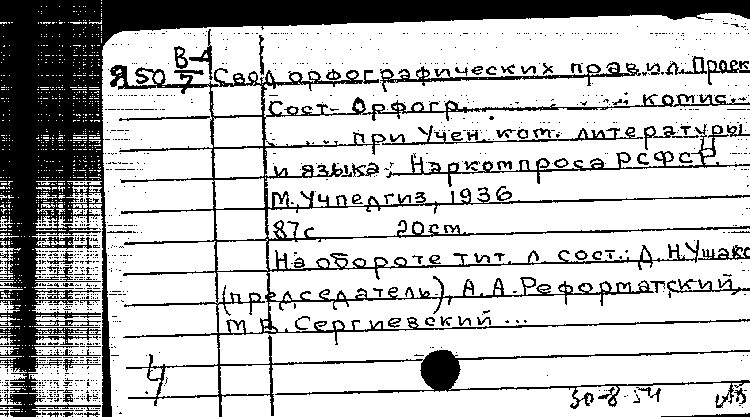 В-4
Я50 7 Свод орфографических правил. Проек
Сост. Орфогр. комис.
при Учен. ком. литературы
и языка; Наркомпроса РСФСР.
М., Учпедгиз, 1936
87с. 20см.
На обороте тит. л. сост.: Д.Н.Ушако
(председатель), А.А.Реформатский,
М.В.Сергиевский...
4
30-8-54